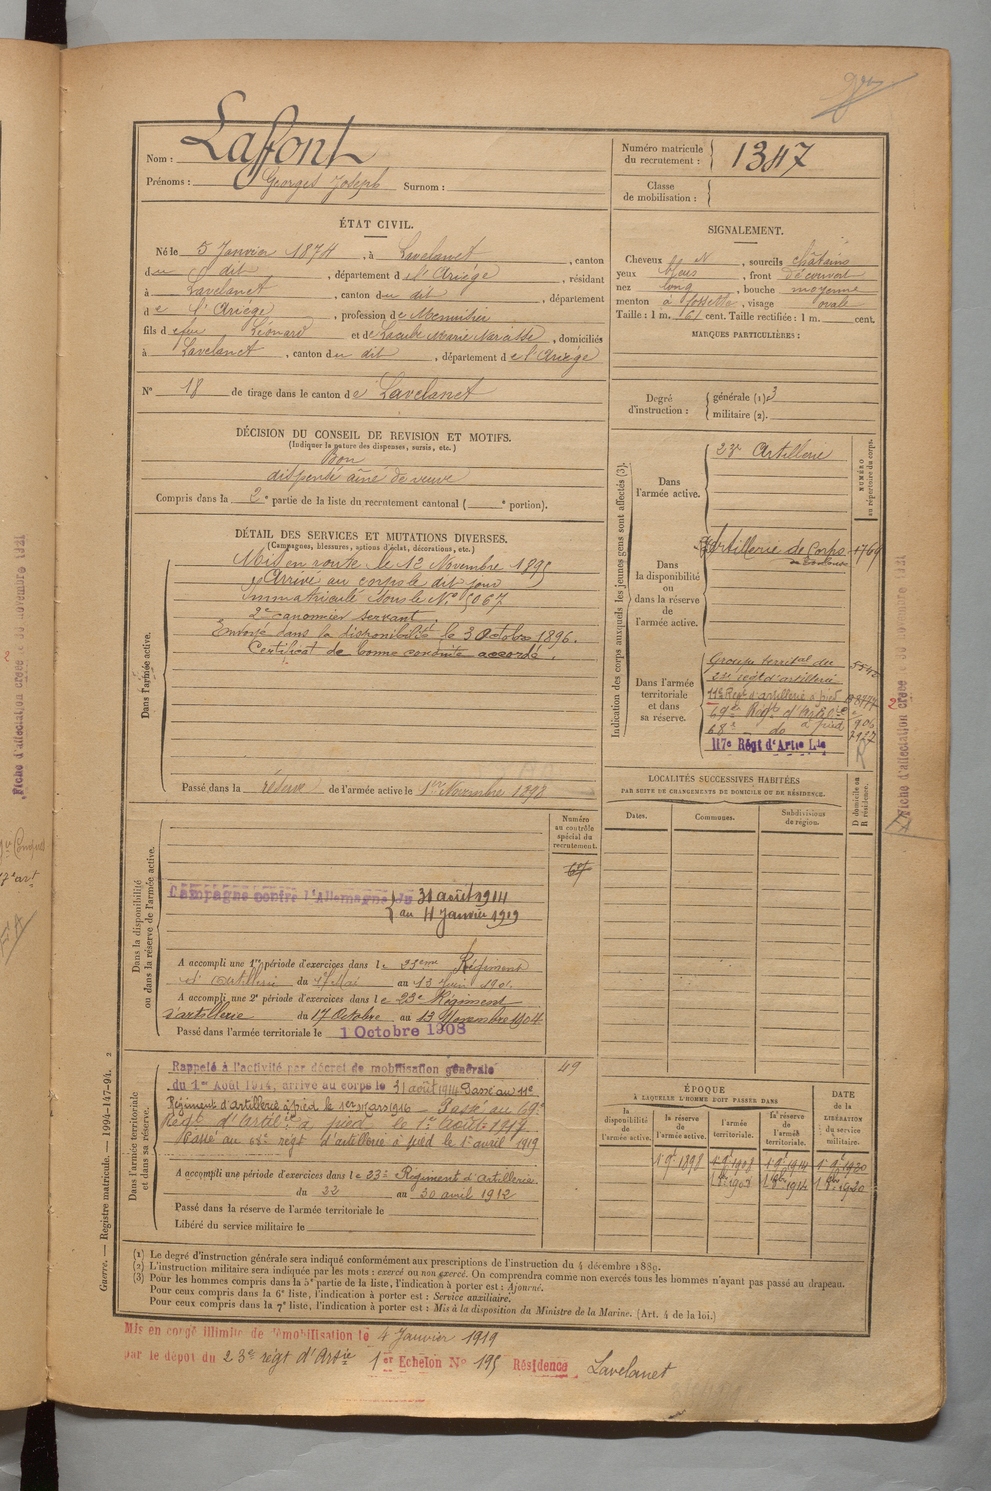 Nom : Lafont
Prénoms : Georges Joseph Surnom :
Numéro matricule du recrutement : 1347
Classe de mobilisation :
ÉTAT CIVIL.
Né le 5 Janvier 1874, à Lavelanet, canton
du dit, département de l'Ariège, résidant
à Lavelanet, canton du dit, département
de l'Ariège, profession de Menuisier
fils de feu Léonard et de Marie, domiciliés
à Lavelanet, canton du dit, département de l'Ariège
N° 18 de tirage dans le canton de Lavelanet
SIGNALEMENT.
Cheveux et, sourcils châtains
yeux, front découvert
nez long, bouche moyenne
menton à fossette, visage ovale
Taille : 1 m. 61 cent. Taille rectifiée : 1 m. cent.
MARQUES PARTICULIÈRES :
Degré d'instruction : générale (1) 3
militaire (2).
DÉCISION DU CONSEIL DE REVISION ET MOTIFS.
(Indiquer la nature des dispenses, sursis, etc.)
Bon
dispensé aîné de veuve
Compris dans la 2e partie de la liste du recrutement cantonal ( e portion).
DÉTAIL DES SERVICES ET MUTATIONS DIVERSES.
(Campagnes, blessures, actions d'éclat, décorations, etc.)
Dans l'armée active.
Mis en route le 12 Novembre 1895
Arrivé au corps le dit jour
Immatriculé sous le N° 5067
2e canonnier servant.
Envoyé dans la disponibilité le 3 Octobre 1896.
Certificat de bonne conduite accordé.
Passé dans la réserve de l'armée active le 1er Novembre 1898
Indication des corps auxquels les jeunes gens sont affectés (3).
NUMÉRO au répertoire du corps.
Dans l'armée active.
23e Artillerie
Dans la disponibilité ou dans la réserve de l'armée active.
Artillerie de Corps 1769
Dans l'armée territoriale et dans sa réserve.
Groupe territal du
23e regt d'artillerie
11e Regt d'artillerie à pied
69e Régt d'Artill ie à pied
68e do
117e Régt d'Artie Lde
LOCALITÉS SUCCESSIVES HABITÉES
PAR SUITE DE CHANGEMENTS DE DOMICILE OU DE RÉSIDENCE.
Dates. Communes. Subdivisions de région. D domicile ou R résidence.
Dans la disponibilité ou dans la réserve de l'armée active.
Numéro au contrôle spécial du recrutement.
Campagne contre l'Allemagne du 31 août 1914
au 4 Janvier 1919
A accompli une 1re période d'exercices dans le 23eme Régiment
d'artillerie du 17 Mai au 13 Juin 190
A accompli une 2e période d'exercices dans le 23e Régiment
d'artillerie du 17 Octobre au 13 Novembre 1904
Passé dans l'armée territoriale le 1 Octobre 1908
Dans l'armée territoriale et dans sa réserve.
49
Rappelé à l'activité par décret de mobilisation générale
du 1er Août 1914, arrivé au corps le 31 août 1914 Passé au 11e
Régiment d'Artillerie à pied le 1er mars 1916 — Passé au 69e
Régt d'Artill ie à pied le 1er Août 1917.
Passé au 68e régt d'artillerie à pied le 1er avril 1919
A accompli une période d'exercices dans le 23e Régiment d'artillerie
du 22 au 30 avril 1912
Passé dans la réserve de l'armée territoriale le
Libéré du service militaire le
ÉPOQUE
À LAQUELLE L'HOMME DOIT PASSER DANS
la disponibilité de l'armée active. la réserve de l'armée active. l'armée territoriale. la réserve de l'armée territoriale. DATE de la LIBÉRATION du service militaire.
1 9 1898 1 9 1908 1 9 1914 1 9 1920
(1) Le degré d'instruction générale sera indiqué conformément aux prescriptions de l'instruction du 4 décembre 1889.
(2) L'instruction militaire sera indiquée par les mots : exercé ou non exercé. On comprendra comme non exercés tous les hommes n'ayant pas passé au drapeau.
(3) Pour les hommes compris dans la 5e partie de la liste, l'indication à porter est : Ajourné.
Pour ceux compris dans la 6e liste, l'indication à porter est : Service auxiliaire.
Pour ceux compris dans la 7e liste, l'indication à porter est : Mis à la disposition du Ministre de la Marine. (Art. 4 de la loi.)
Guerre. — Registre matricule. — 1994-147-94.
Mis en congé illimité de démobilisation le 4 Janvier 1919
par le dépôt du 23e régt d'Artie 1er Echelon N° 195 Résidence Lavelanet
Fiche d'affectation créée le 30 novembre 1921
Fiche d'affectation créée le 30 novembre 1921